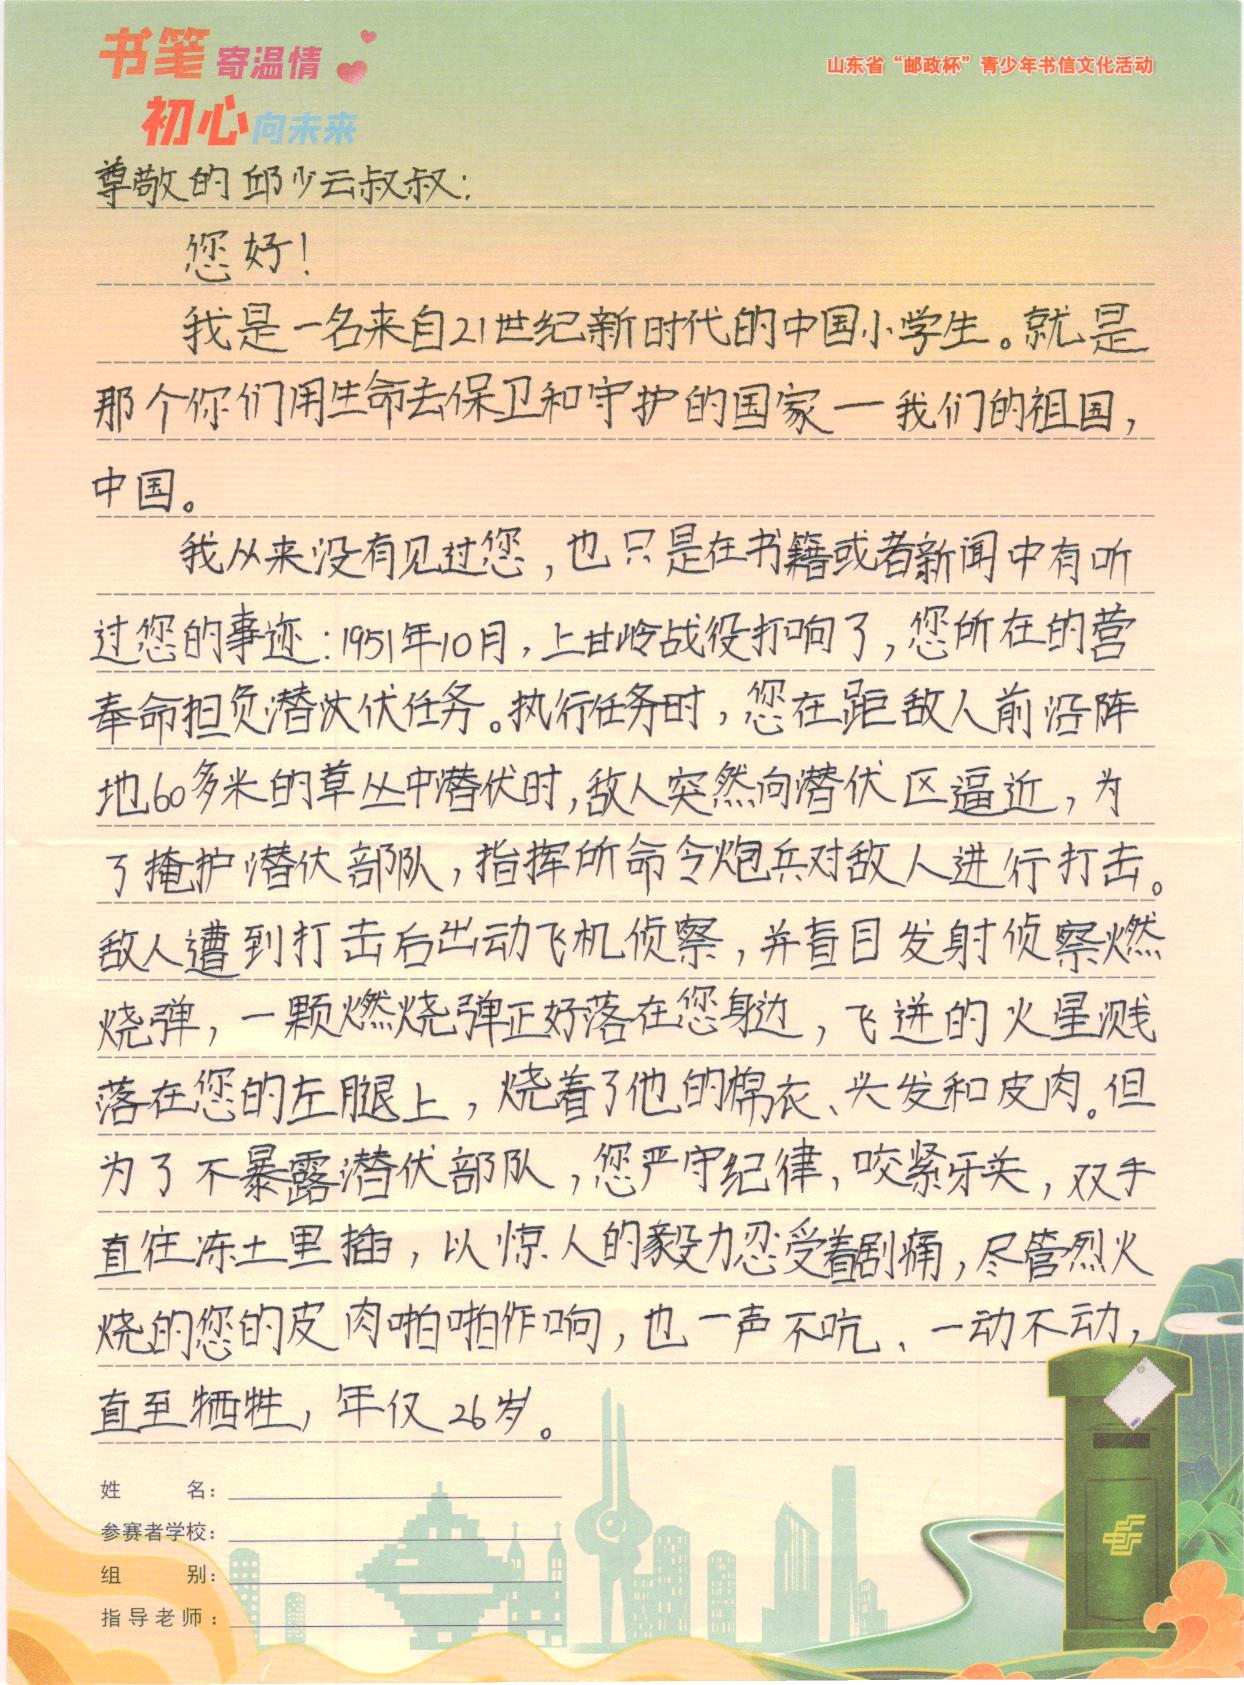 书笔寄温情
初心向未来
山东省“邮政杯”青少年书信文化活动
尊敬的邱少云叔叔：
您好！
我是一名来自21世纪新时代的中国小学生。就是
那个你们用生命去保卫和守护的国家—我们的祖国，
中国。
我从来没有见过您，也只是在书籍或者新闻中有听
过您的事迹：1951年10月，上甘岭战役打响了，您所在的营
奉命担负潜伏任务。执行任务时，您在距敌人前沿阵
地60多米的草丛中潜伏时，敌人突然向潜伏区逼近，为
了掩护潜伏部队，指挥所命令炮兵对敌人进行打击。
敌人遭到打击后出动飞机侦察，并盲目发射侦察燃
烧弹，一颗燃烧弹正好落在您身边，飞迸的火星溅
落在您的左腿上，烧着了他的棉衣、头发和皮肉。但
为了不暴露潜伏部队，您严守纪律，咬紧牙关，双手
直往冻土里插，以惊人的毅力忍受着剧痛，尽管烈火
烧的您的皮肉啪啪作响，也一声不吭、一动不动，
直至牺牲，年仅26岁。
姓名：
参赛者学校：
组别：
指导老师：